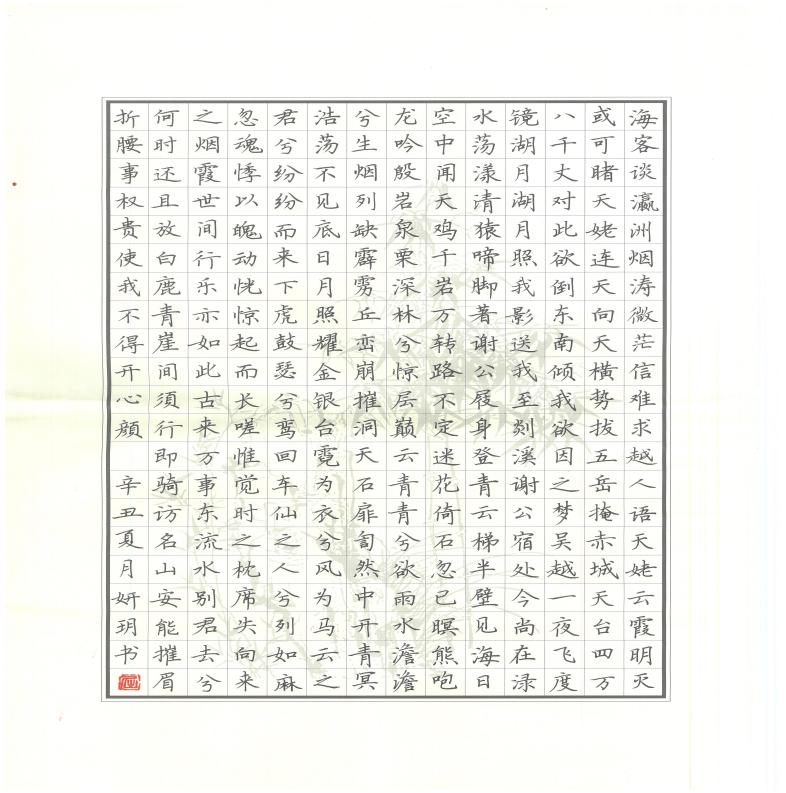 海客谈瀛洲烟涛微茫信难求越人语天姥云霞明灭
或可睹天姥连天向天横势拔五岳掩赤城天台四万
八千丈对此欲倒东南倾我欲因之梦吴越一夜飞度
镜湖月湖月照我影送我至剡溪谢公宿处今尚在渌
水荡漾清猿啼脚著谢公屐身登青云梯半壁见海日
空中闻天鸡千岩万转路不定迷花倚石忽已暝熊咆
龙吟殷岩泉栗深林兮惊层巅云青青兮欲雨水澹澹
兮生烟列缺霹雳丘峦崩摧洞天石扉訇然中开青冥
浩荡不见底日月照耀金银台霓为衣兮风为马云之
君兮纷纷而来下虎鼓瑟兮鸾回车仙之人兮列如麻
忽魂悸以魄动恍惊起而长嗟惟觉时之枕席失向来
之烟霞世间行乐亦如此古来万事东流水别君去兮
何时还且放白鹿青崖间須行即骑访名山安能摧眉
折腰事权贵使我不得开心顔 辛丑夏月妍玥书